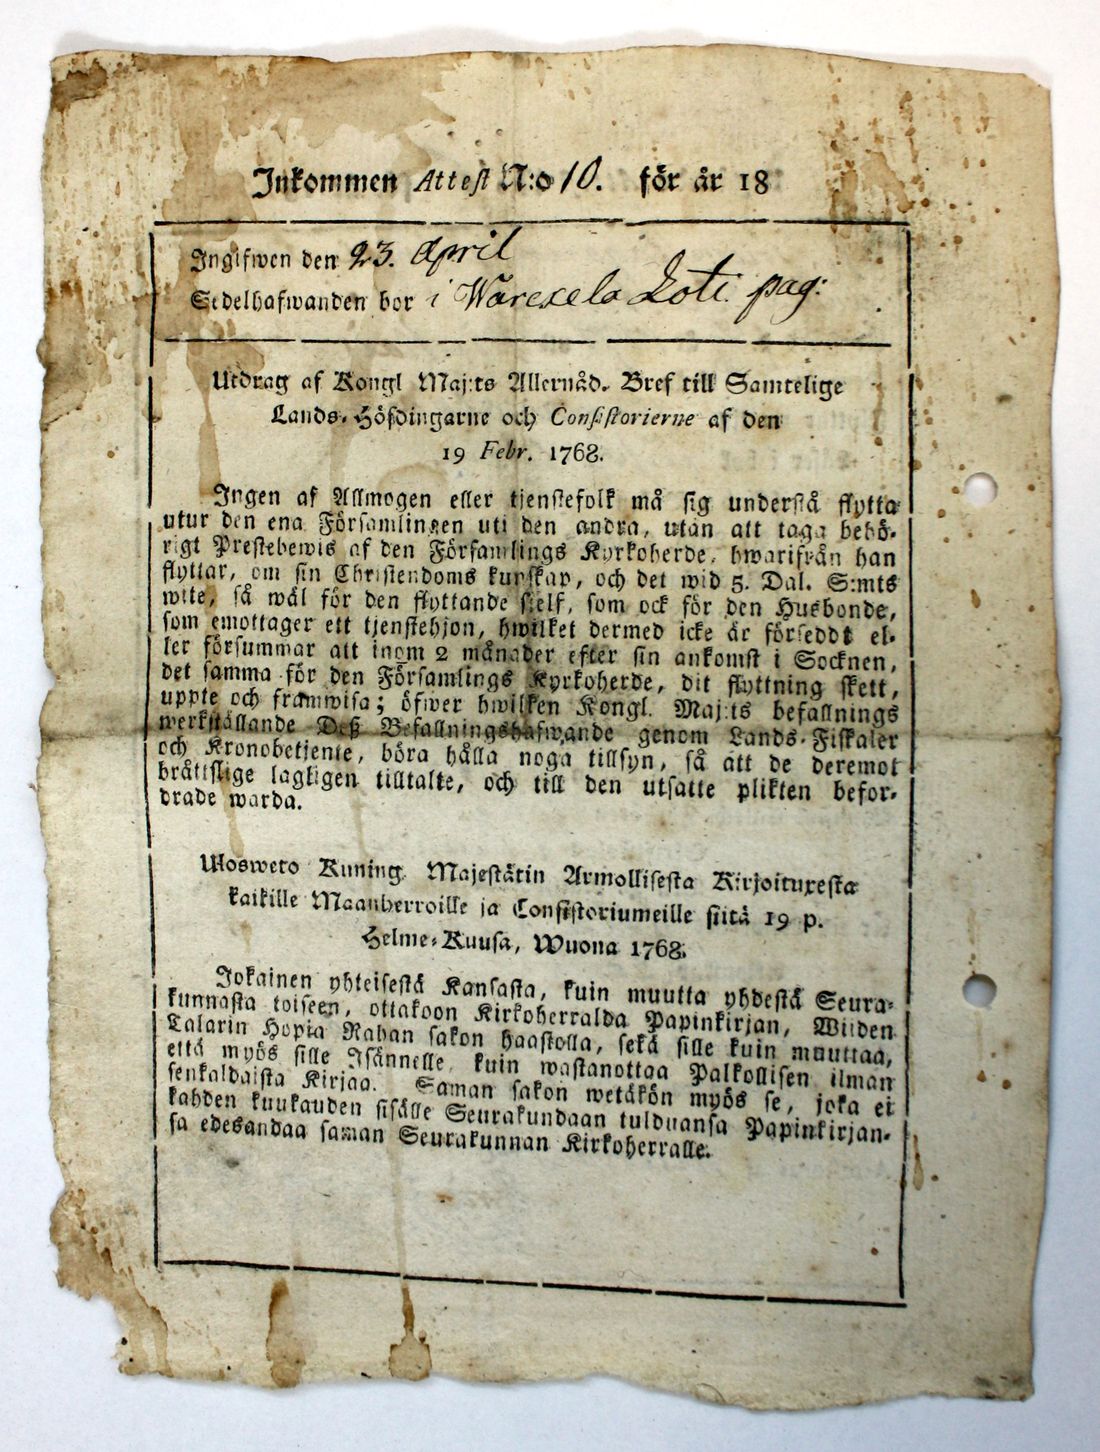 Inkommen Attest N:o 10. för år 18
Ingifwen den 23. April
Sedelhafwanden bor i Warexela Loti pag:
Utdrag af Kongl Maj:ts Allernåd. Bref till Samtelige
Lands-Höfdingarne och Consistorierne af den
19 Febr. 1768.
Ingen af Allmogen eller tjenstefolk må sig understå flytta
utur den ena Församlingen uti den andra, utan att taga behö-
rigt Prestebewis af den Församlings Kyrkoherde, hwarifrån han
flyttar, om sin Christendoms kunskap, och det wid 5. Dal. S:mts
wite, så wäl för den flyttande sjelf, som ock för den Husbonde,
som emottager ett tjenstehjon, hwilket dermed icke är försedt el-
ler försummar att inom 2 månader efter sin ankomst i Socknen,
det samma för den Församlings Kyrkoherde, dit flyttning skett,
uppte och framwisa; öfwer hwilken Kongl. Maj:ts befallnings
werkställande Deß Befallningshafwande genom Lands-Fiskaler
och Kronobetjente, böra hålla noga tillsyn, så att de deremot
bråttslige lagligen tilltalte, och till den utsatte plikten befor-
drade warda.
Ulosweto Kuning. Majestätin Armollisesta Kirjoituxesta
kaikille Maanherroille ja Consistoriumeille siitä 19 p.
Helme-Kuusa, Wuona 1768.
Jokainen yhteisestä Kansasta, kuin muutta yhdestä Seura-
kunnasta toiseen, ottakoon Kirkoherralda Papinkirjan, Wiiden
Talarin Hopia Rahan sakon haastolla, sekä sille kuin muuttaa,
että myös sille Isännelle, kuin wastanottaa Palkollisen ilman
senkaldaista Kirjaa. Saman sakon wetäkön myös se, joka ei
kahden kuukauden sisälle Seurakundaan tulduansa Papinkirjan-
sa edesandaa saman Seurakunnan Kirkoherralle.